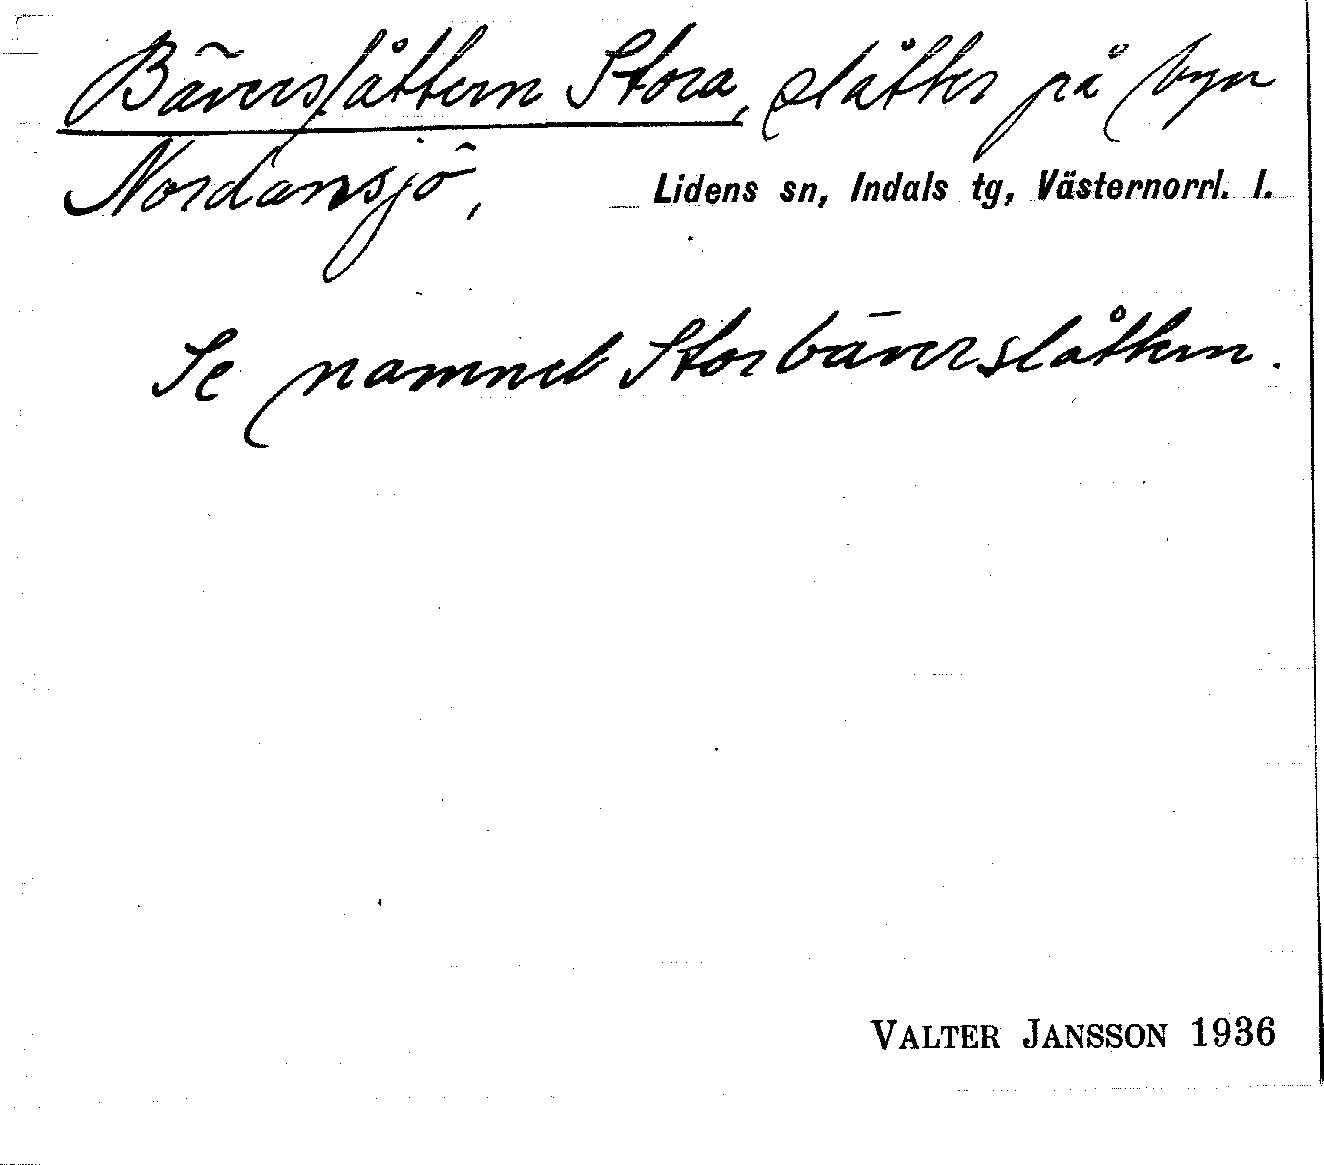 Bäverslåttern Stora, slåtter på byn
Nordansjö, Lidens sn, Indals tg, Västernorrl. l.
Se namnet Storbäverslåttern.
VALTER JANSSON 1936